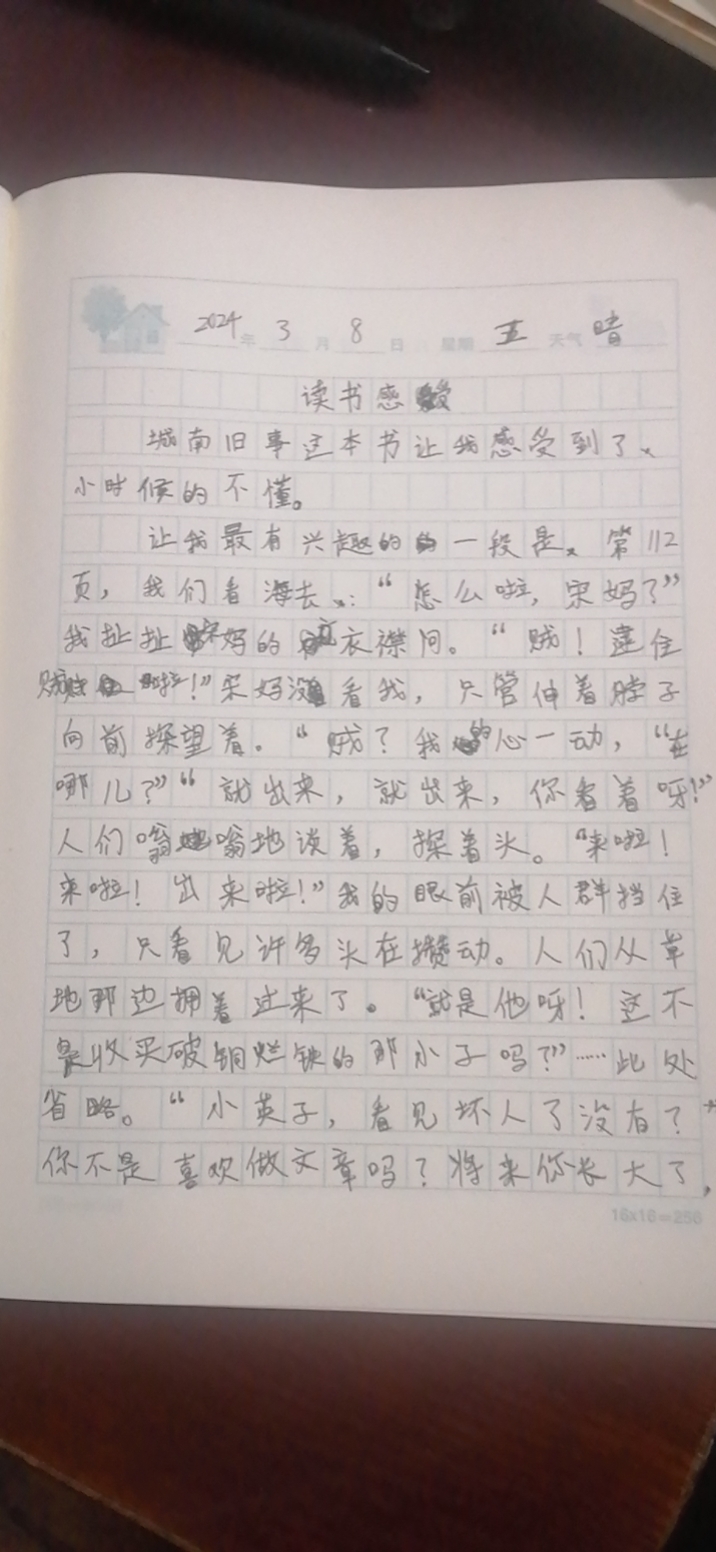 2024年 3月 8日 星期 五 天气 晴
读书感受
城南旧事这本书让我感受到了、
小时候的不懂。
让我最有兴趣的一段是、第112
页，我们看海去、：“怎么啦，宋妈？”
我扯扯宋妈的衣襟问。“贼！逮住
贼啦！”宋妈没看我，只管伸着脖子
向前探望着。“贼？我的心一动，“在
哪儿？”“就出来，就出来，你看着呀！”
人们嗡嗡地谈着，探着头。“来啦！
来啦！出来啦！”我的眼前被人群挡住
了，只看见许多头在攒动。人们从草
地那边拥着过来了。“就是他呀！这不
是收买破铜烂铁的那小子吗？”……此处
省略。“小英子，看见坏人了没有？
你不是喜欢做文章吗？将来你长大了，
16x16=256